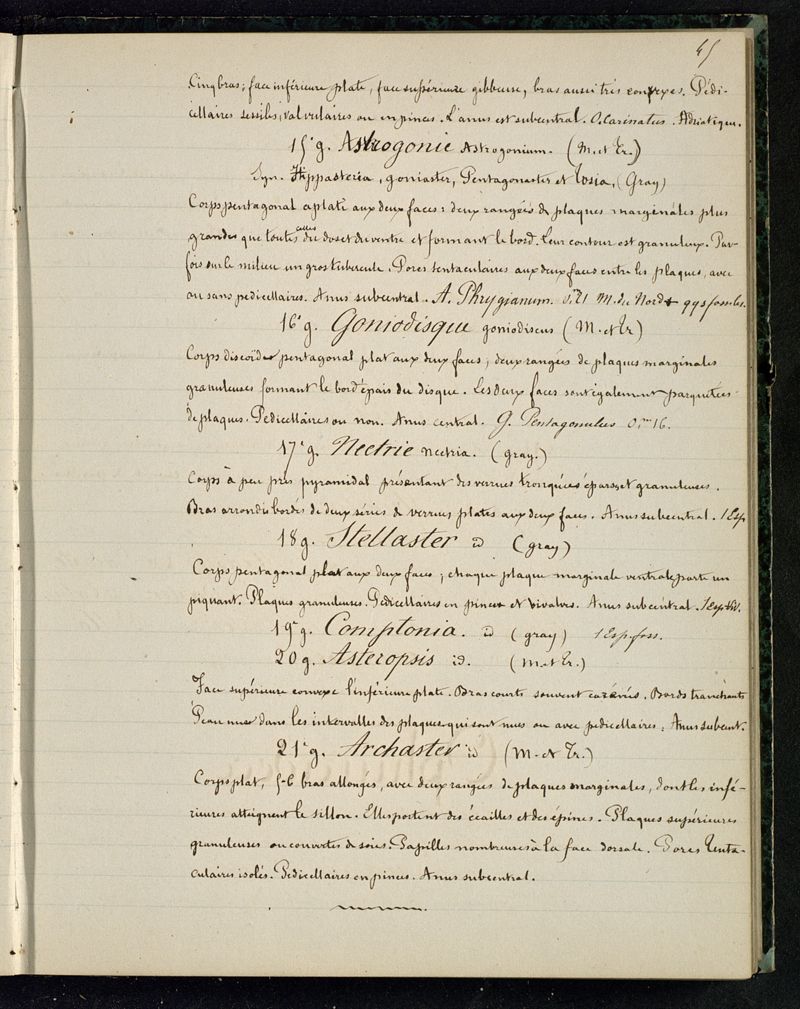 45
Cinq bras; face inférieure plate, face supérieure gibbeuse, bras aussi très convexes. Pédi-
cellaires sessiles, valvulaires ou en pinces. L'anus est subcentral. O. Carinatus. Adriatique.
15e g. Astrogonie Astrogonium. (M. et Tr.)
Syn. Hippasteria, goniaster, Pentagonaster et Tosia, (Gray)
Corps pentagonal aplati aux deux faces: deux rangées de plaques marginales plus
grandes que toutes celles du dos et du ventre et formant le bord. Leur contour est granuleux. Par-
fois sur le milieu un gros tubercule. Pores tentaculaires aux deux faces entre les plaques, avec
ou sans pedicellaires. Anus subcentral. A. Phrygianum. M. du Nord + qqs fossiles.
16e g. Goniodisque goniodiscus (M. et Tr)
Corps discoïde pentagonal plat aux deux faces, deux rangées de plaques marginales
granuleuses formant le bord épais du disque. Les deux faces sont également parquetées
de plaques. Pedicellaires ou non. Anus central. G. Pentagonulus 0,m16.
17e g. Nectrie nectria. (gray.)
Corps à peu près pyramidal présentant des verrues tronquées éparses et granuleuses.
Bras arrondis bordés de deux séries de verrues plates aux deux faces. Anus subcentral. 1 Esp
18 g. Stellaster id (gray)
Corps pentagonal plat aux deux faces, chaque plaque marginale ventrale porte un
piquant. Plaques granuleuses. Pedicellaires en pinces et bivalves. Anus subcentral. 1 Esp.
19e g. Comptonia. id (gray) 1 Esp. foss.
20 g. Asteropsis id. (M. et Tr.)
Face supérieure convexe l'inférieure plate. Bras courts souvent carénés. Bords tranchants
Peau nue dans les intervalles des plaques qui sont nues ou avec pedicellaires. Anus subcent.
21e g. Archaster id (M. et Tr.)
Corps plat, 5-6 bras allongés, avec deux rangées de plaques marginales, dont les infé-
rieures atteignent le sillon. Elles portent des écailles et des épines. Plaques supérieures
granuleuses ou couvertes de soies. Papilles nombreuses à la face dorsale. Pores tenta-
culaires isolés. Pedicellaires en pinces. Anus subcentral.